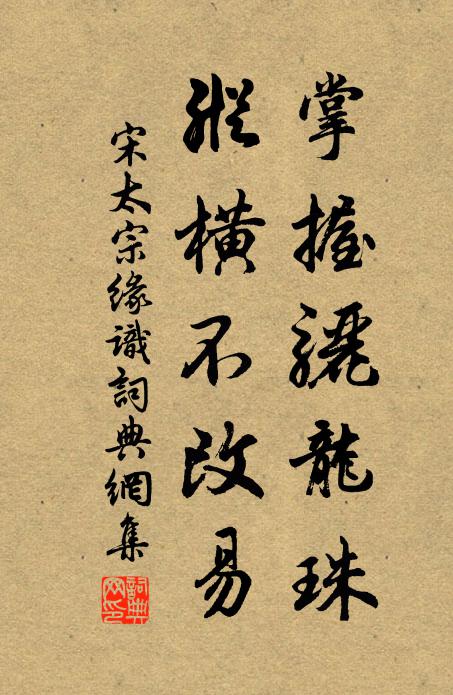 掌握驪龍珠
縱橫不改易
宋太宗緣識詞典網集
詞典網印